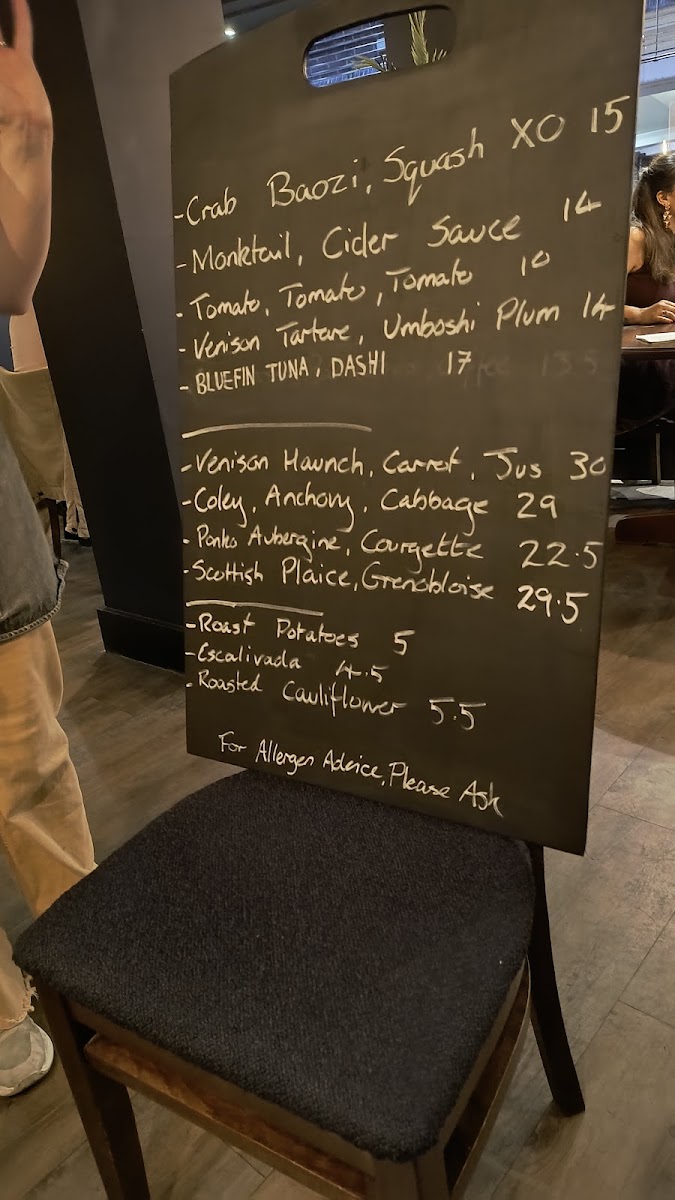 - Crab Baozi, Squash XO 15
- Monktail, Cider Sauce 14
- Tomato, Tomato, Tomato 10
- Venison Tartare, Umboshi Plum 14
- BLUEFIN TUNA, DASHI 17
- Venison Haunch, Carrot, Jus 30
- Coley, Anchovy, Cabbage 29
- Panko Aubergine, Courgette 22.5
- Scottish Plaice, Grenobloise 29.5
- Roast Potatoes 5
- Escalivada 4.5
- Roasted Cauliflower 5.5
For Allergen Advice, Please Ask